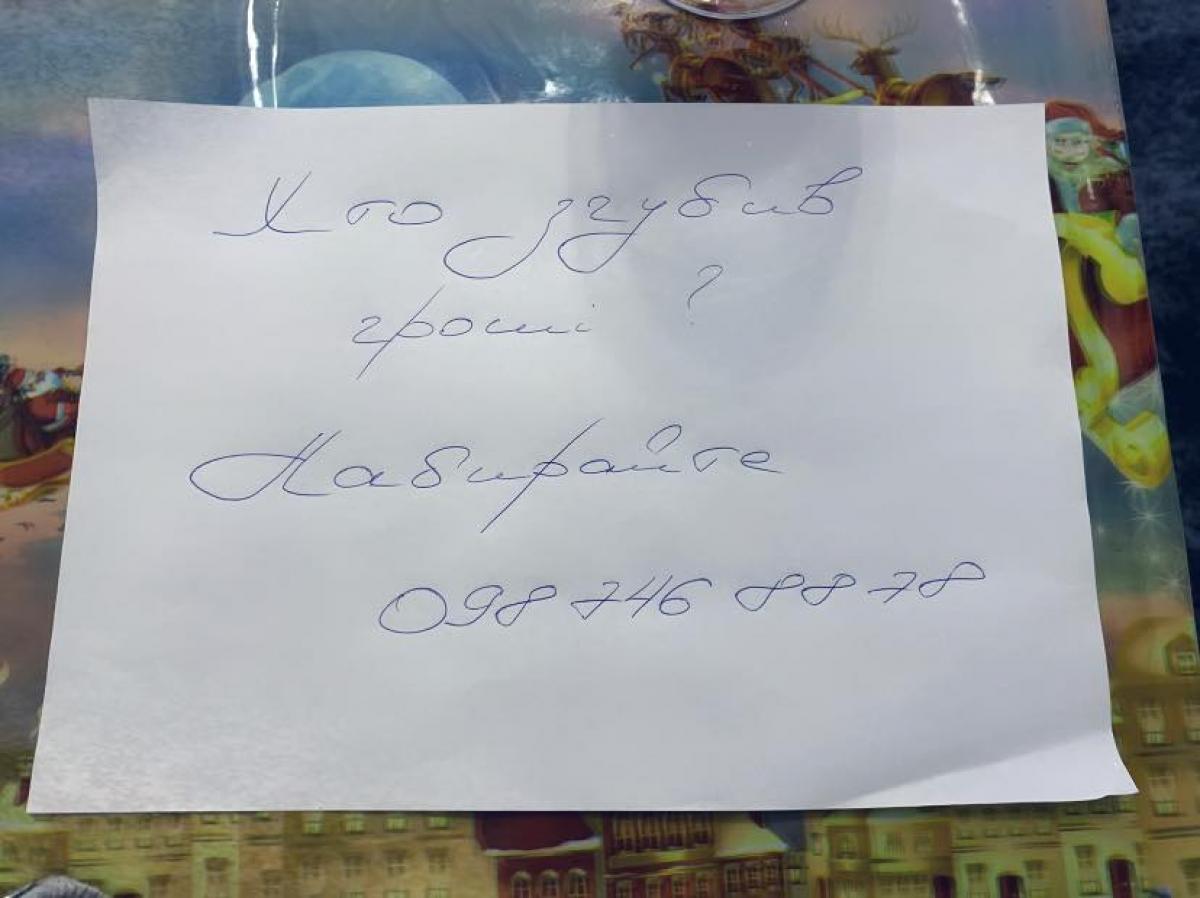 Хто згубив
гроші ?
Набирайте
098 746 88 78